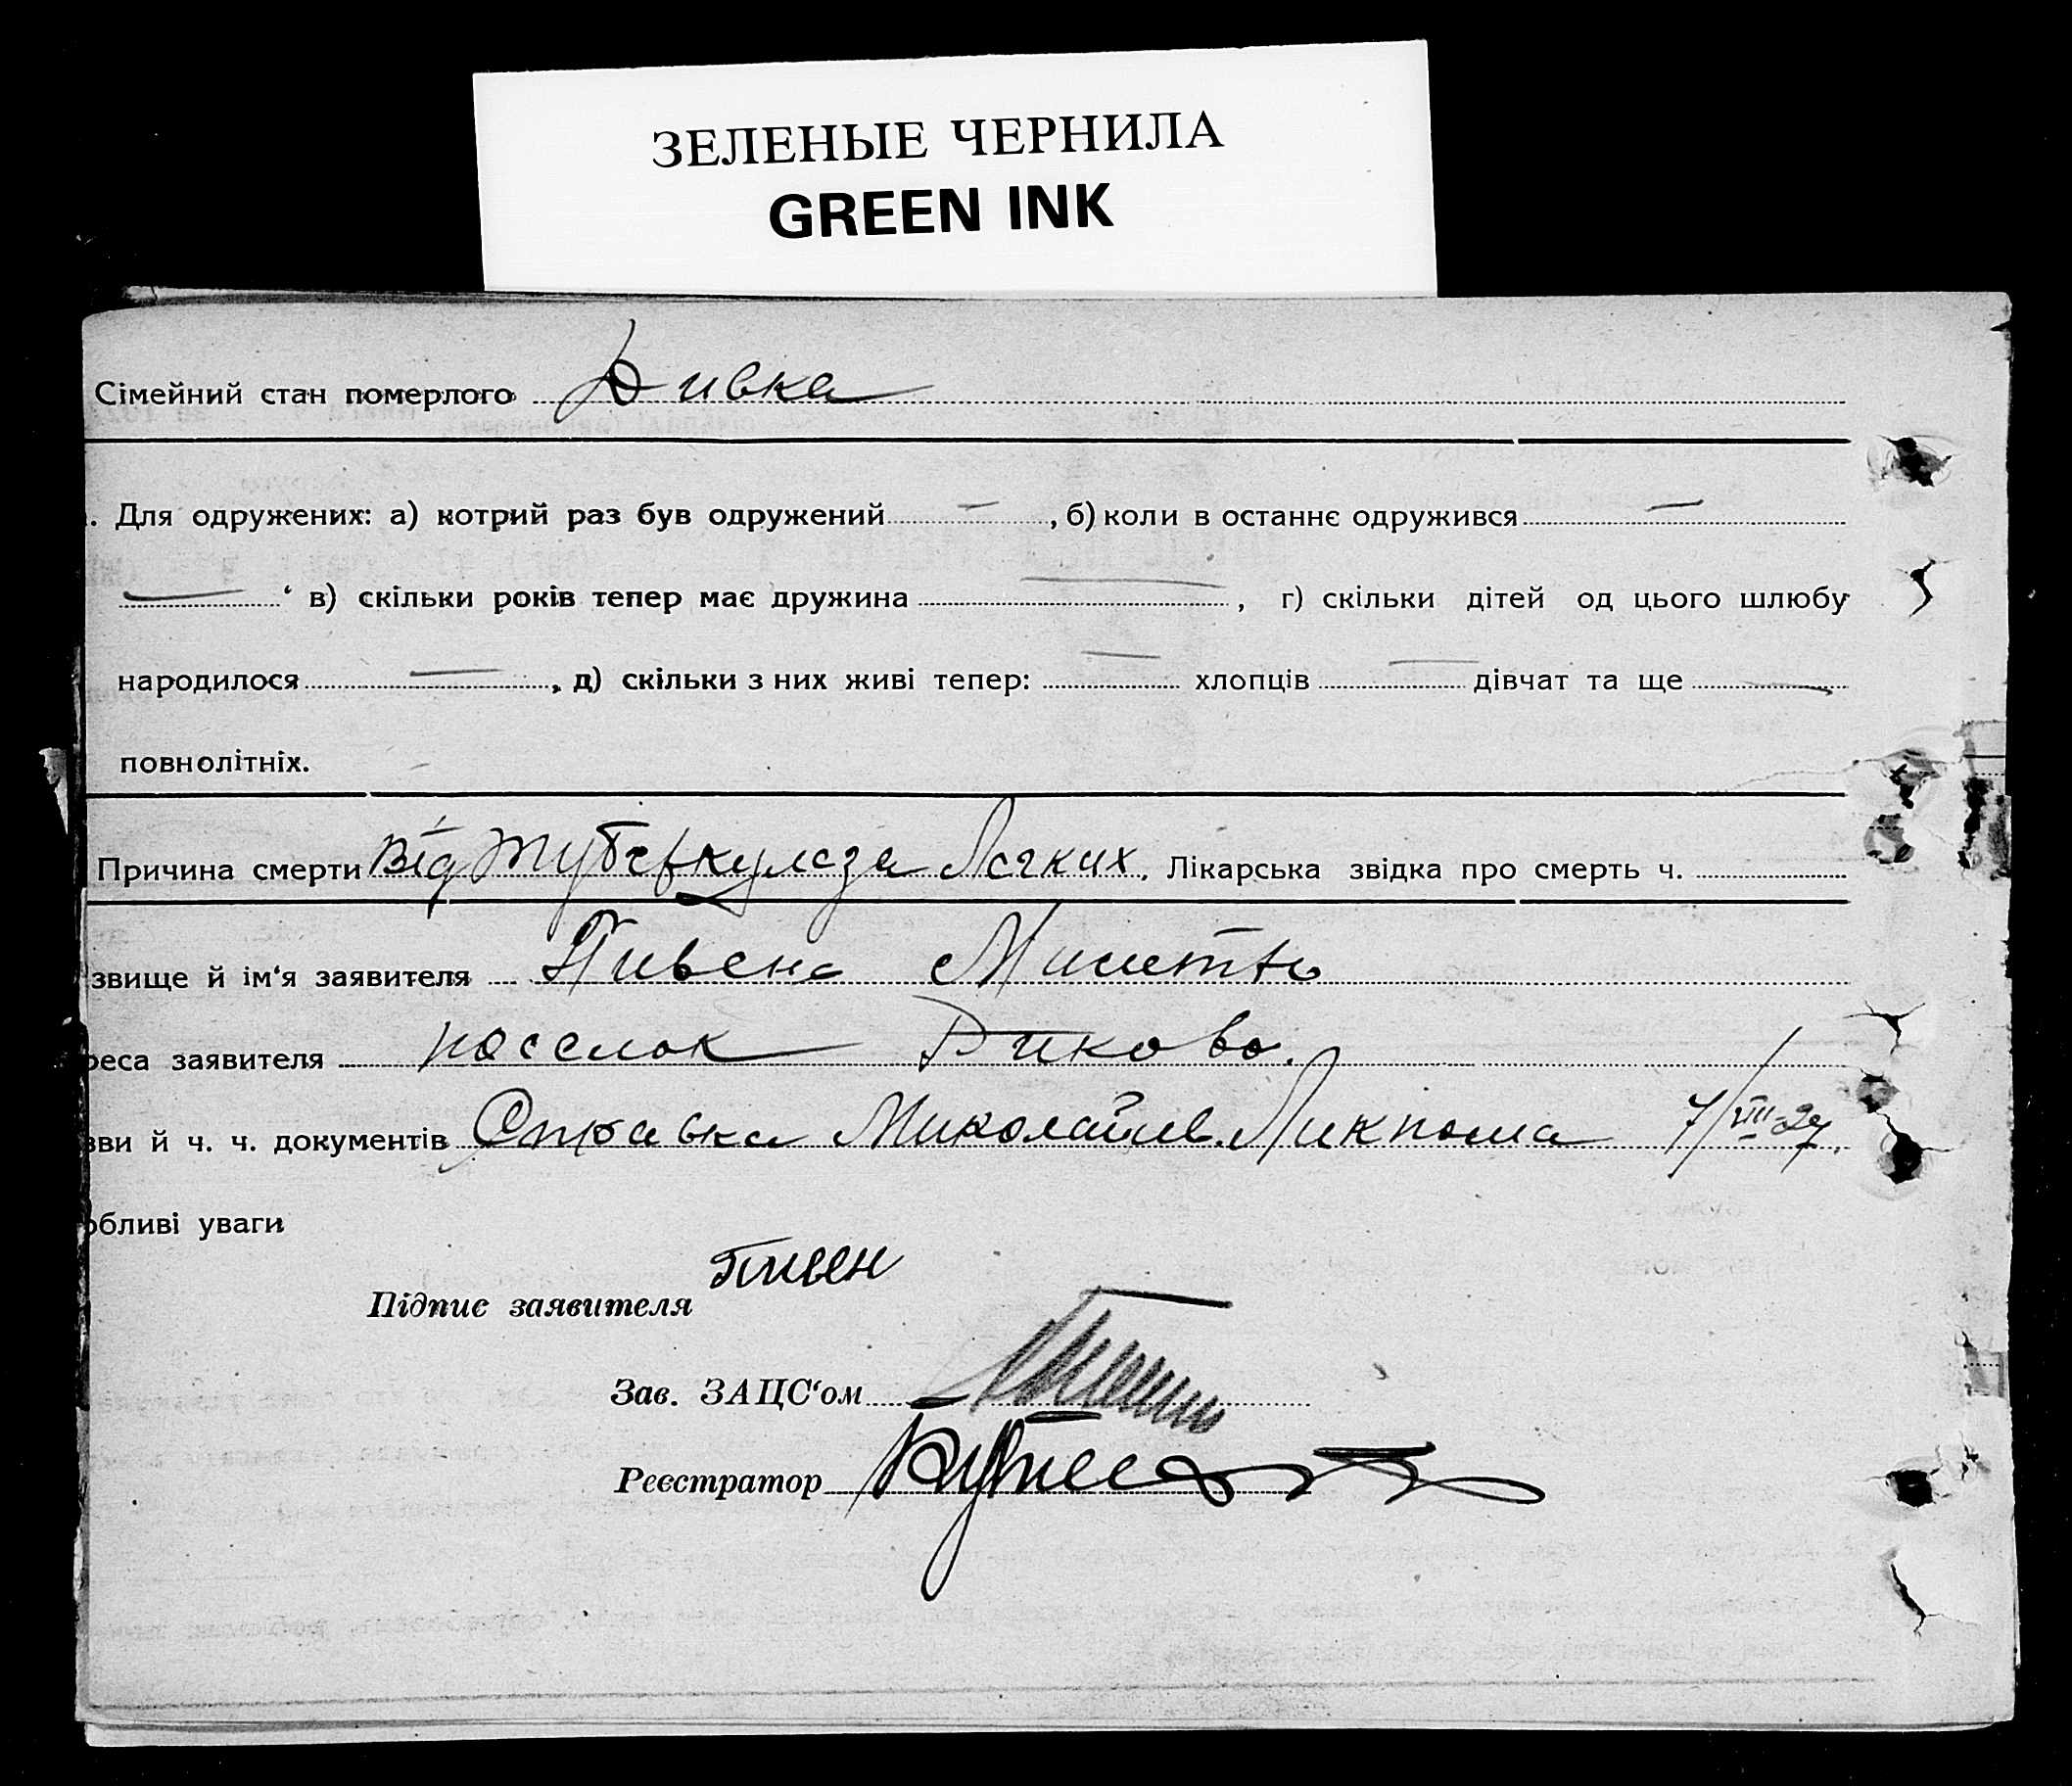 ЗЕЛЕНЫЕ ЧЕРНИЛА
GREEN INK
Сімейний стан померлого Дивка
. Для одружених: а) котрий раз був одружений — , б) коли в останнє одружився —
— ‘ в) скільки років тепер має дружина — , г) скільки дітей од цього шлюбу
народилося — , д) скільки з них живі тепер: — хлопців — дівчат та ще —
повнолітніх.
Причина смерти Від туберкульоза Легких. Лікарська звідка про смерть ч.
звище й ім‘я заявителя Пивень
реса заявителя поселок Диково.
зви й ч. ч. документів Справка Миколаїв. Ликпома 7/VIII-27.
обливі уваги
Підпис заявителя Пивен
Зав. ЗАЦС‘ом
Реєстратор